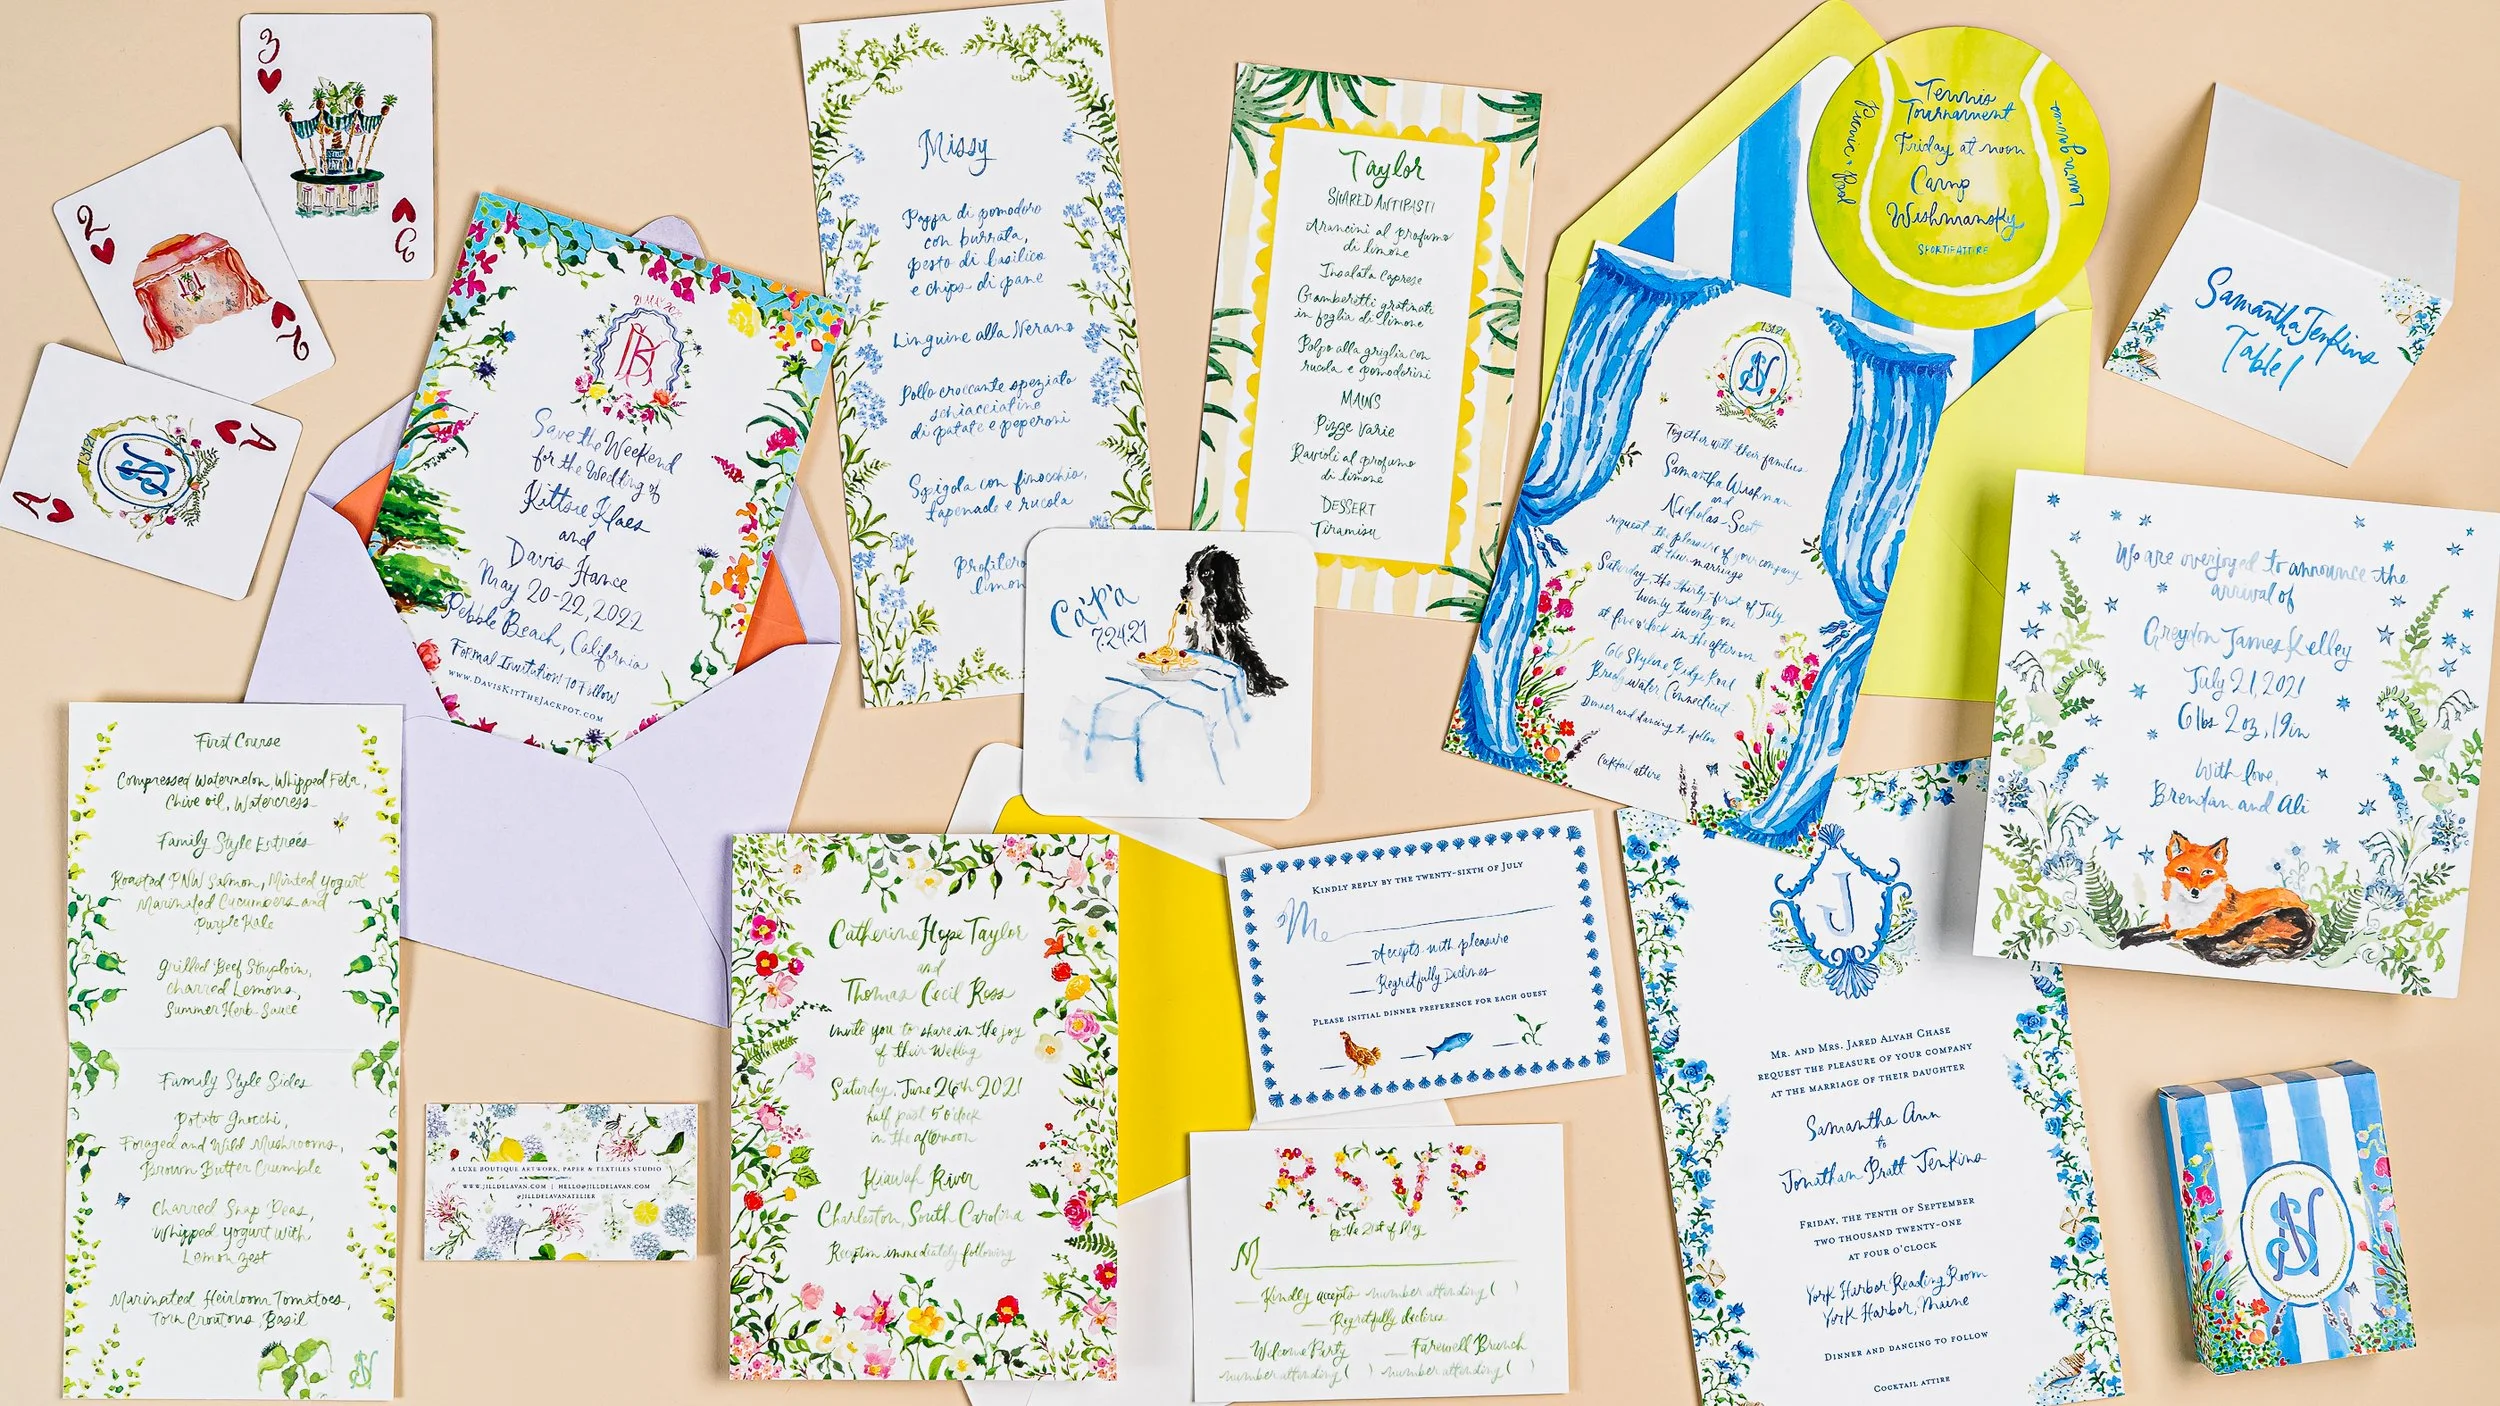 3
3
2
2
A
A
7.31.21
SN
21 MAY 2022
Save the Weekend
for the Wedding of
Kittsie Klaes
and
Davis Hance
May 20-22, 2022
Pebble Beach, California
Formal Invitation to Follow
www.DavisKitTheJackpot.com
Missy
Pappa di pomodoro
con burrata,
pesto di basilico
e chips di pane
Linguine alla Nerano
Pollo croccante speziato
schiacciatine
di patate e peperoni
Spigola con finocchio,
tapenade e rucola
Profitero
limon
Taylor
SHARED ANTIPASTI
Arancini al profumo
di limone
Insalata Caprese
Gamberetti gratinati
in foglia di limone
Polpo alla griglia con
rucola e pomodorini
MAINS
Pizze Varie
Ravioli al profumo
di limone
DESSERT
Tiramisu
Ca'p'a
7.24.21
Tennis
Tournament
Friday at noon
Camp
Wishmansky
SPORTIF ATTIRE
Picnic + Pool
Lawn games
7.31.21
SN
Together with their families
Samantha Wishman
and
Nicholas Scott
request the pleasure of your company
at their marriage
Saturday, the thirty-first of July
twenty twenty-one
at five o'clock in the afternoon
66 Skyline Ridge Road
Bridgewater Connecticut
Dinner and dancing to follow
Cocktail attire
Samantha Jenkins
Table 1
We are overjoyed to announce the
arrival of
Greydon James Kelley
July 21, 2021
6 lbs 2 oz, 19 in
With love,
Brendan and Ali
First Course
Compressed Watermelon, Whipped Feta,
Chive oil, Watercress
Family Style Entreés
Roasted PNW Salmon, Minted Yogurt
Marinated Cucumbers and
Purple Kale
Grilled Beef Striploin,
Charred Lemons,
Summer Herb Sauce
Family Style Sides
Potato Gnocchi,
Foraged and Wild Mushrooms,
Brown Butter Crumble
Charred Snap Peas,
Whipped Yogurt with
Lemon zest
Marinated Heirloom Tomatoes,
Torn Croutons, Basil
SN
A LUXE BOUTIQUE ARTWORK, PAPER & TEXTILES STUDIO
WWW.JILLDELAVAN.COM | HELLO@JILLDELAVAN.COM
@JILLDELAVANATELIER
Catherine Hope Taylor
and
Thomas Cecil Ross
invite you to share in the joy
of their Wedding
Saturday, June 26th 2021
half past 5 o'clock
in the afternoon
Kiawah River
Charleston, South Carolina
Reception immediately following
Kindly reply by the twenty-sixth of July
M
Accepts with pleasure
Regretfully Declines
Please initial dinner preference for each guest
RSVP
by the 21st of May
M
Kindly accepts number attending ( )
Regretfully declines
Welcome Party
number attending ( )
Farewell Brunch
number attending ( )
J
Mr. and Mrs. Jared Alvah Chase
request the pleasure of your company
at the marriage of their daughter
Samantha Ann
to
Jonathan Pratt Jenkins
Friday, the tenth of September
two thousand twenty-one
at four o'clock
York Harbor Reading Room
York Harbor, Maine
Dinner and dancing to follow
Cocktail attire
SN